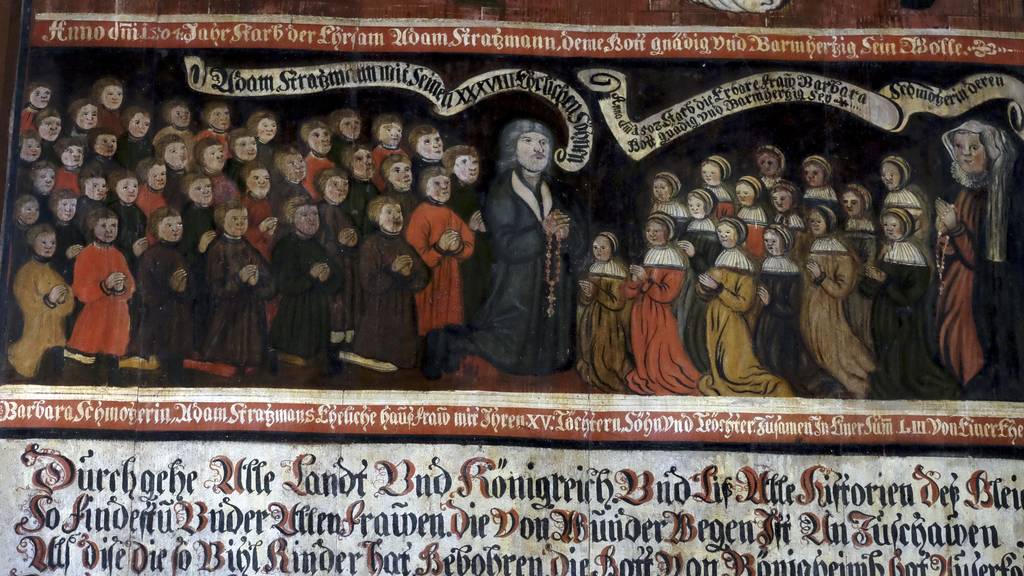 Anno dm̄i 1504. Jahr starb der Ehrsam Adam Stratzmann, deme Gott gnädig vnd Barmhertzig Sein Wolle.
Adam Stratzmann mit Seinen XXXVIII Ehrlichen Söhnen
starb die Erbare fraw Barbara
gnädig vnd Barmhertzig Sey
Schmotzerin deren
Barbara Schmotzerin, Adam Stratzmans Ehrliche haußfraw mit Ihren XV. Töchtern, Söhn vnd Töchter zusamen In Einer Sum̄ LIII Von Einer Ehe
Durchgehe Alle Landt Vnd Königreich, Vnd Liß Alle Historien Deß
So findestu Vnder Allen frawen, die Von Wunder Wegen Ist An Zuschawen
Als dise die so Vihl Kinder hat Gebohren, die Gott Von Bönigheimb hat